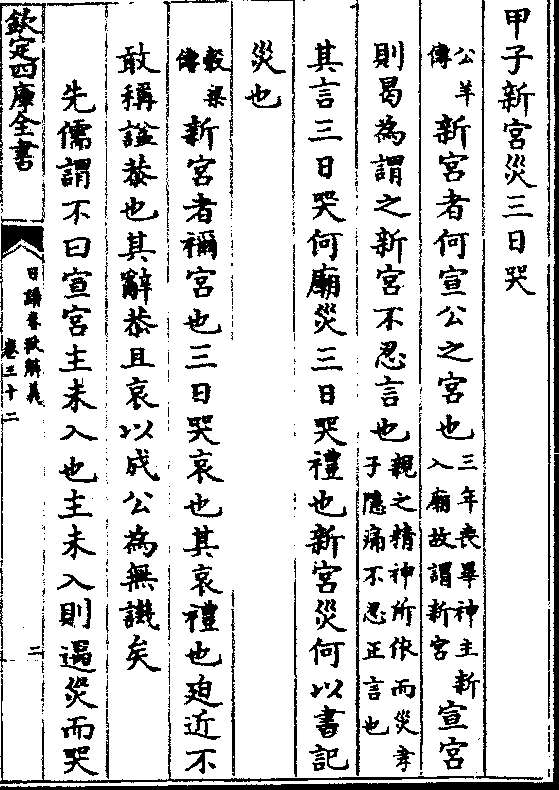 甲子新宫災三日哭
公羊傳新宫者何宣公之宫也三年喪畢神主新入廟故謂新宫宣宫
則曷為謂之新宫不忍言也親之精神所依而災孝子隱痛不忍正言也
其言三日哭何廟災三日哭禮也新宫災何以書記
災也
榖梁傳新宫者禰宫也三日哭哀也其哀禮也廹近不
敢稱諡恭也其辭恭且哀以成公為無譏矣
先儒謂不曰宣宫主未入也主未入則遇災而哭
欽定四庫全書
日講春秋解義
卷三十二
二